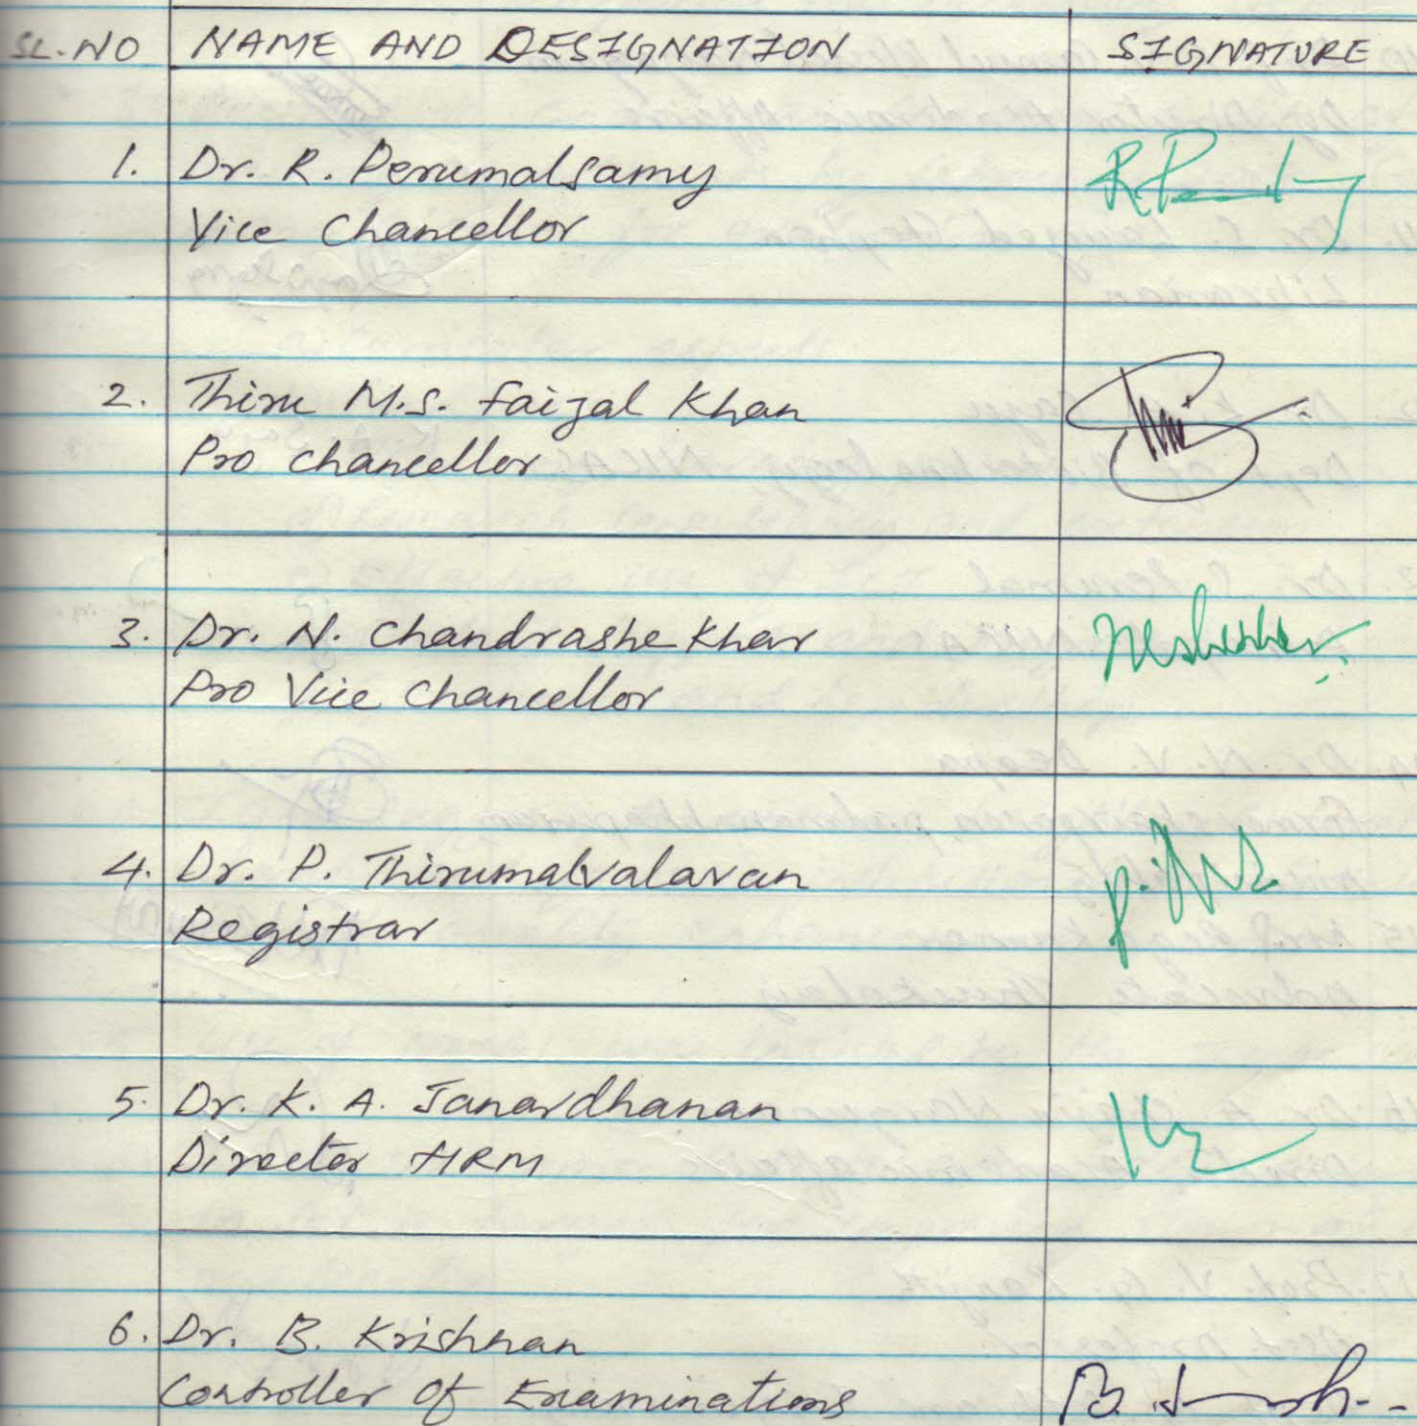 SL.NO NAME AND DESIGNATION SIGNATURE
1. Dr. R. Perumalsamy
Vice Chancellor
2. Thiru M.S. Faizal Khan
Pro Chancellor
3. Dr. N. Chandrashekhar
Pro Vice Chancellor
4. Dr. P. Thirumalvalavan
Registrar
5. Dr. K. A. Janardhanan
Director HRM
6. Dr. B. Krishnan
Controller Of Examinations